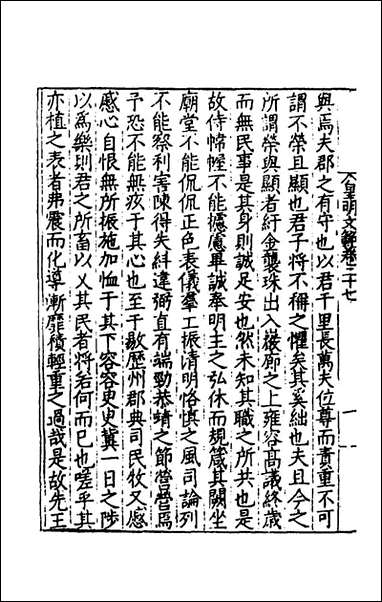 皇明文範卷二十七
與焉夫郡之有守也以君千里長萬夫位尊而責重不可
謂不榮且顯也君子將不稱之懼矣其奚絀也夫且今之
所謂榮與顯者紆金襲珠出入巖廊之上雍容高議終歲
而無民事是其身則誠足安也然未知其職之所共也是
故侍帷幄不能攄慮畢誠奉明主之弘休而規箴其闕坐
廟堂不能侃侃正色表儀羣工振清明恪慎之風司論列
不能察利害陳得失糾違弼直有喘恭靖之節營營焉
予恐不能無疚于其心也至于敭歷州郡典司民牧又感
感心自恨無所振施加恤于其下容容叟叟冀一日之陟
以為樂則君之所畜以乂其民者將若何而已也嗟乎其
亦植之表者弗震而化導漸靡積輕重之過哉是故先王